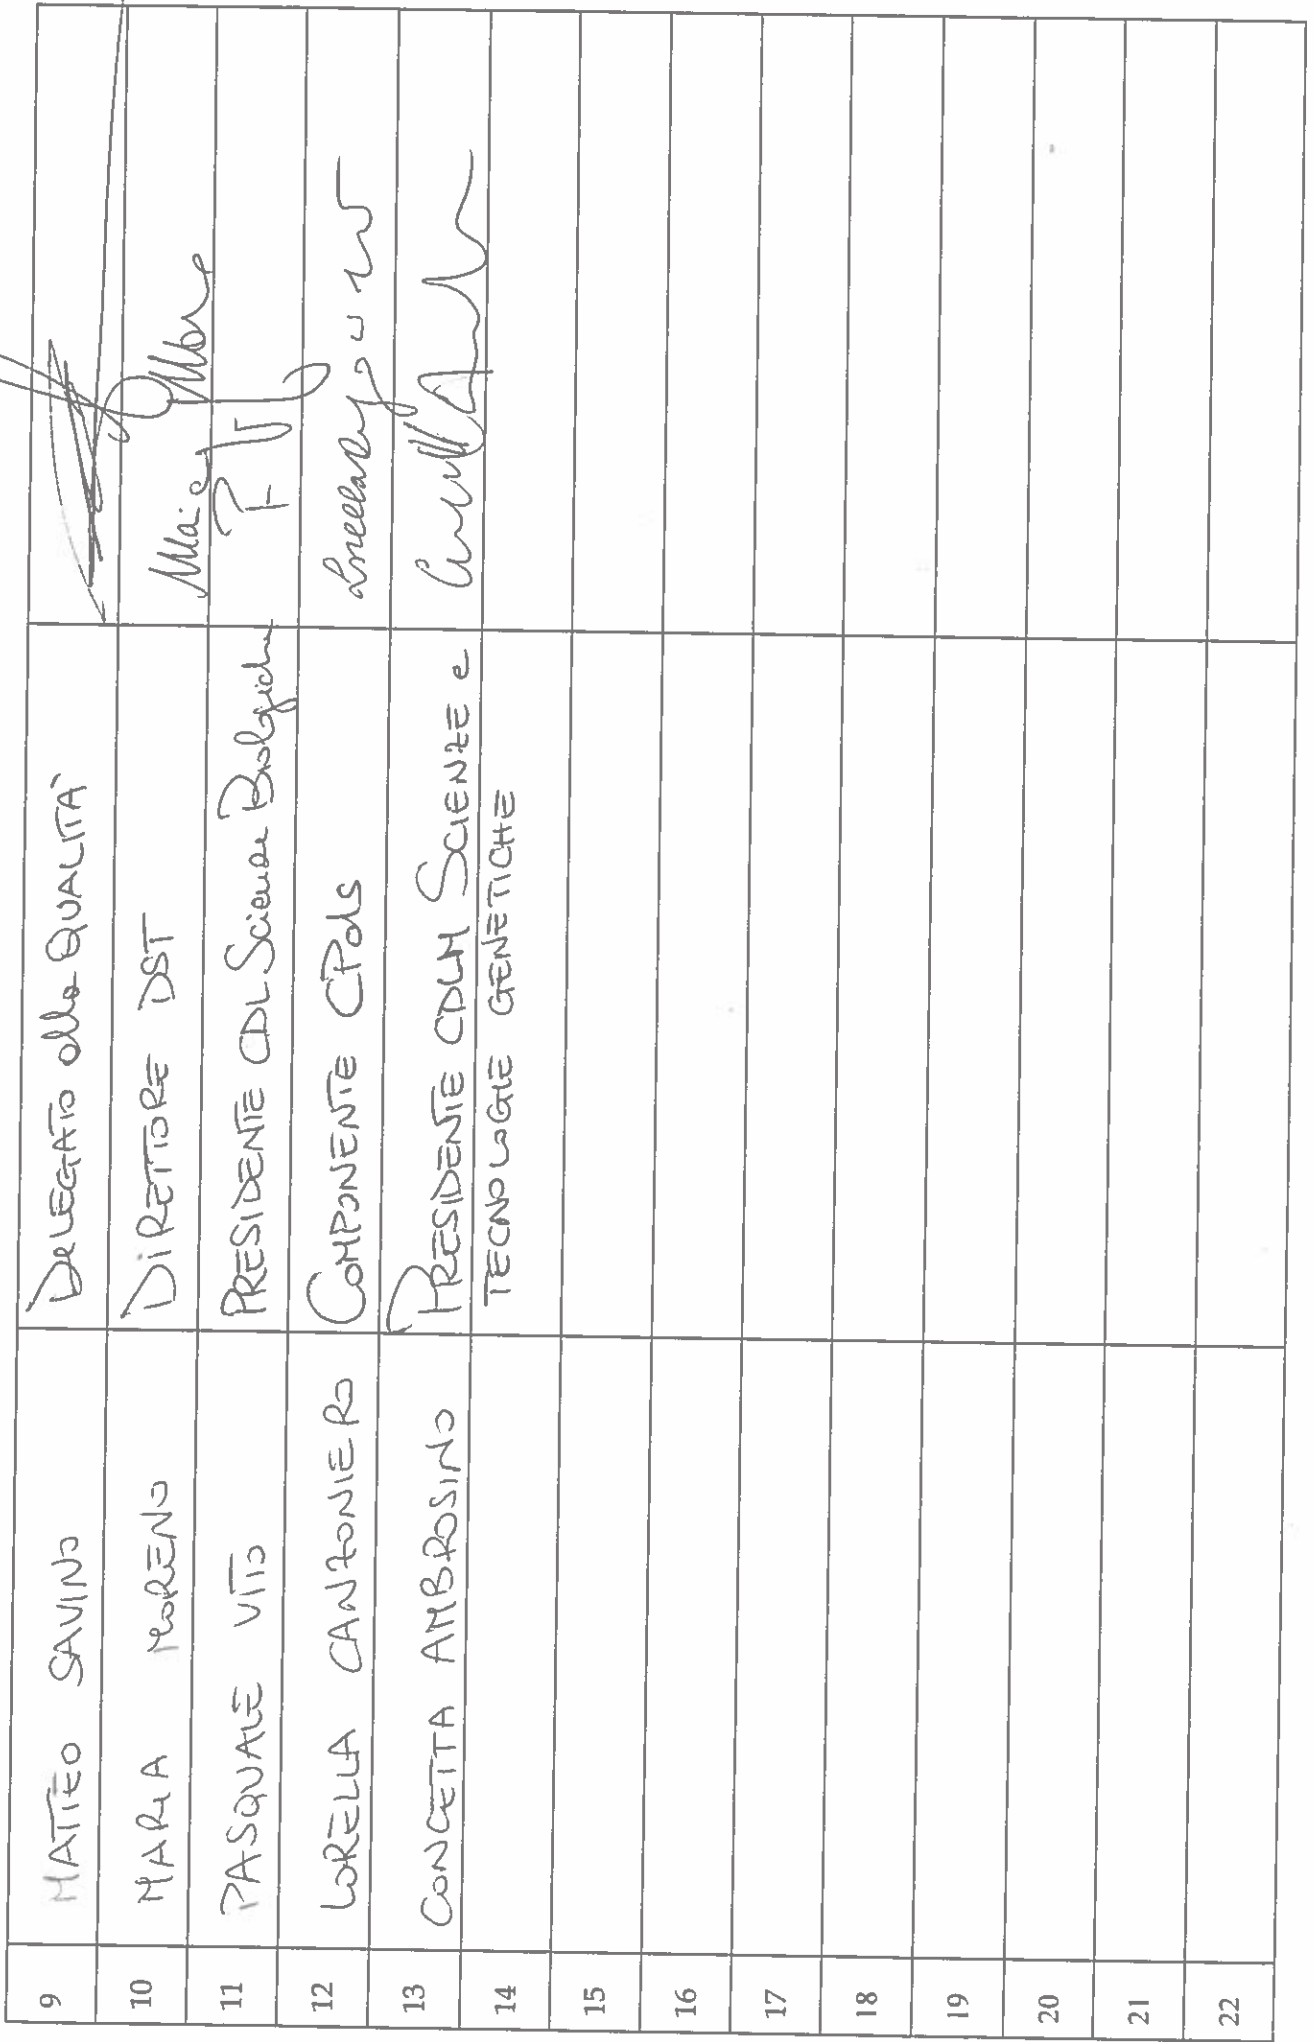 9 MATTEO SAVINO DELEGATO alla QUALITÀ
10 MARIA MORENO DIRETTORE DST
11 PASQUALE VITO PRESIDENTE CDL Scienze Biologiche
12 LORELLA CANZONIERO COMPONENTE CPds
13 CONCETTA AMBROSINO PRESIDENTE CDLM SCIENZE e
14 TECNOLOGIE GENETICHE
15
16
17
18
19
20
21
22